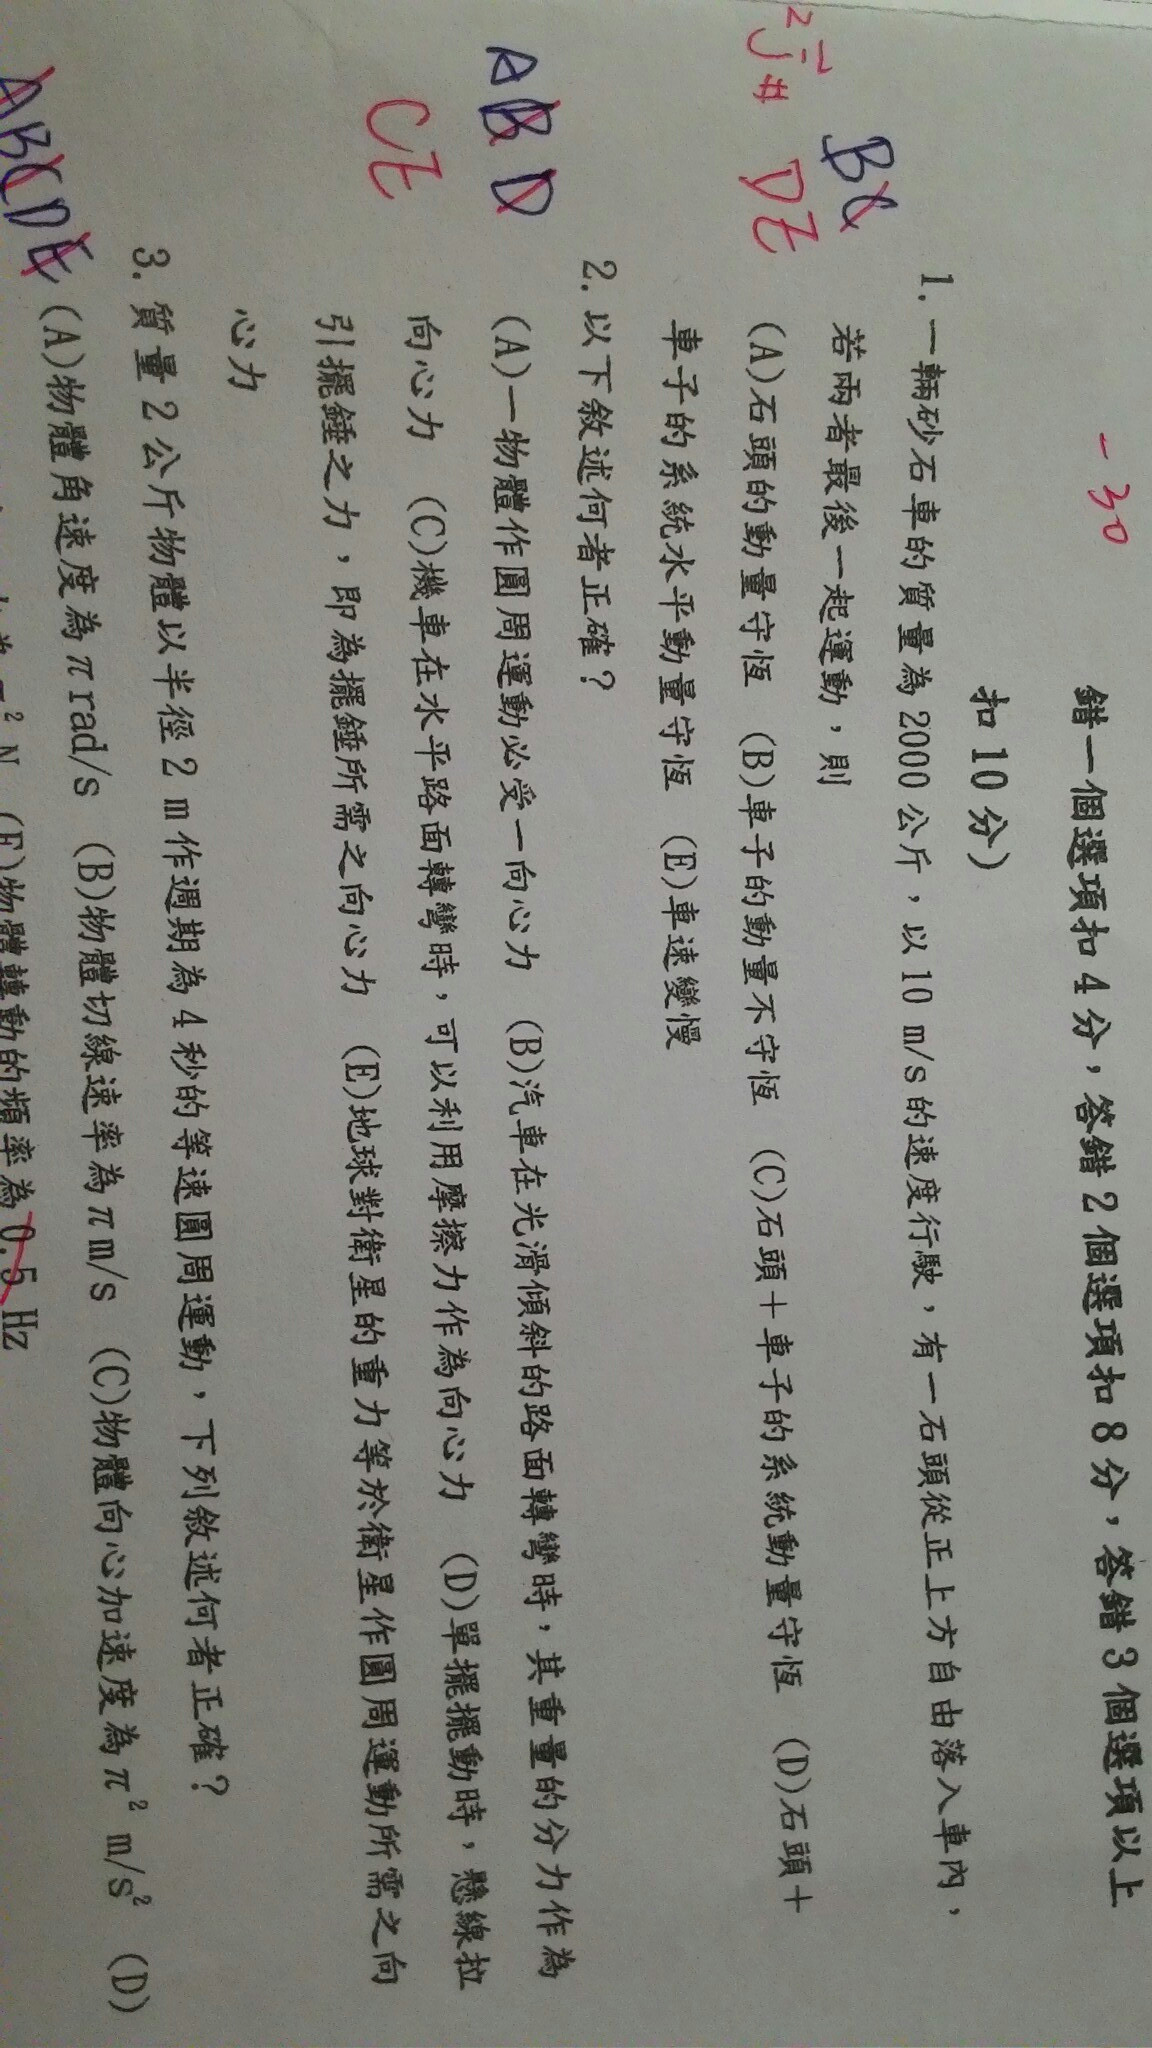 -30
錯一個選項扣4分，答錯2個選項扣8分，答錯3個選項以上
扣10分）
1. 一輛砂石車的質量為2000公斤，以10 m/s的速度行駛，有一石頭從正上方自由落入車內，
若兩者最後一起運動，則
BC
DE
(A)石頭的動量守恆 (B)車子的動量不守恆 (C)石頭＋車子的系統動量守恆 (D)石頭＋
車子的系統水平動量守恆 (E)車速變慢
2. 以下敘述何者正確？
ABD
CE
(A)一物體作圓周運動必受一向心力 (B)汽車在光滑傾斜的路面轉彎時，其重量的分力作為
向心力 (C)機車在水平路面轉彎時，可以利用摩擦力作為向心力 (D)單擺擺動時，懸線拉
引擺錘之力，即為擺錘所需之向心力 (E)地球對衛星的重力等於衛星作圓周運動所需之向
心力
3. 質量2公斤物體以半徑2 m作週期為4秒的等速圓周運動，下列敘述何者正確？
ABCDE
(A)物體角速度為π rad/s (B)物體切線速率為π m/s (C)物體向心加速度為π² m/s² (D)
π² N (E)物體轉動的頻率為0.5 Hz